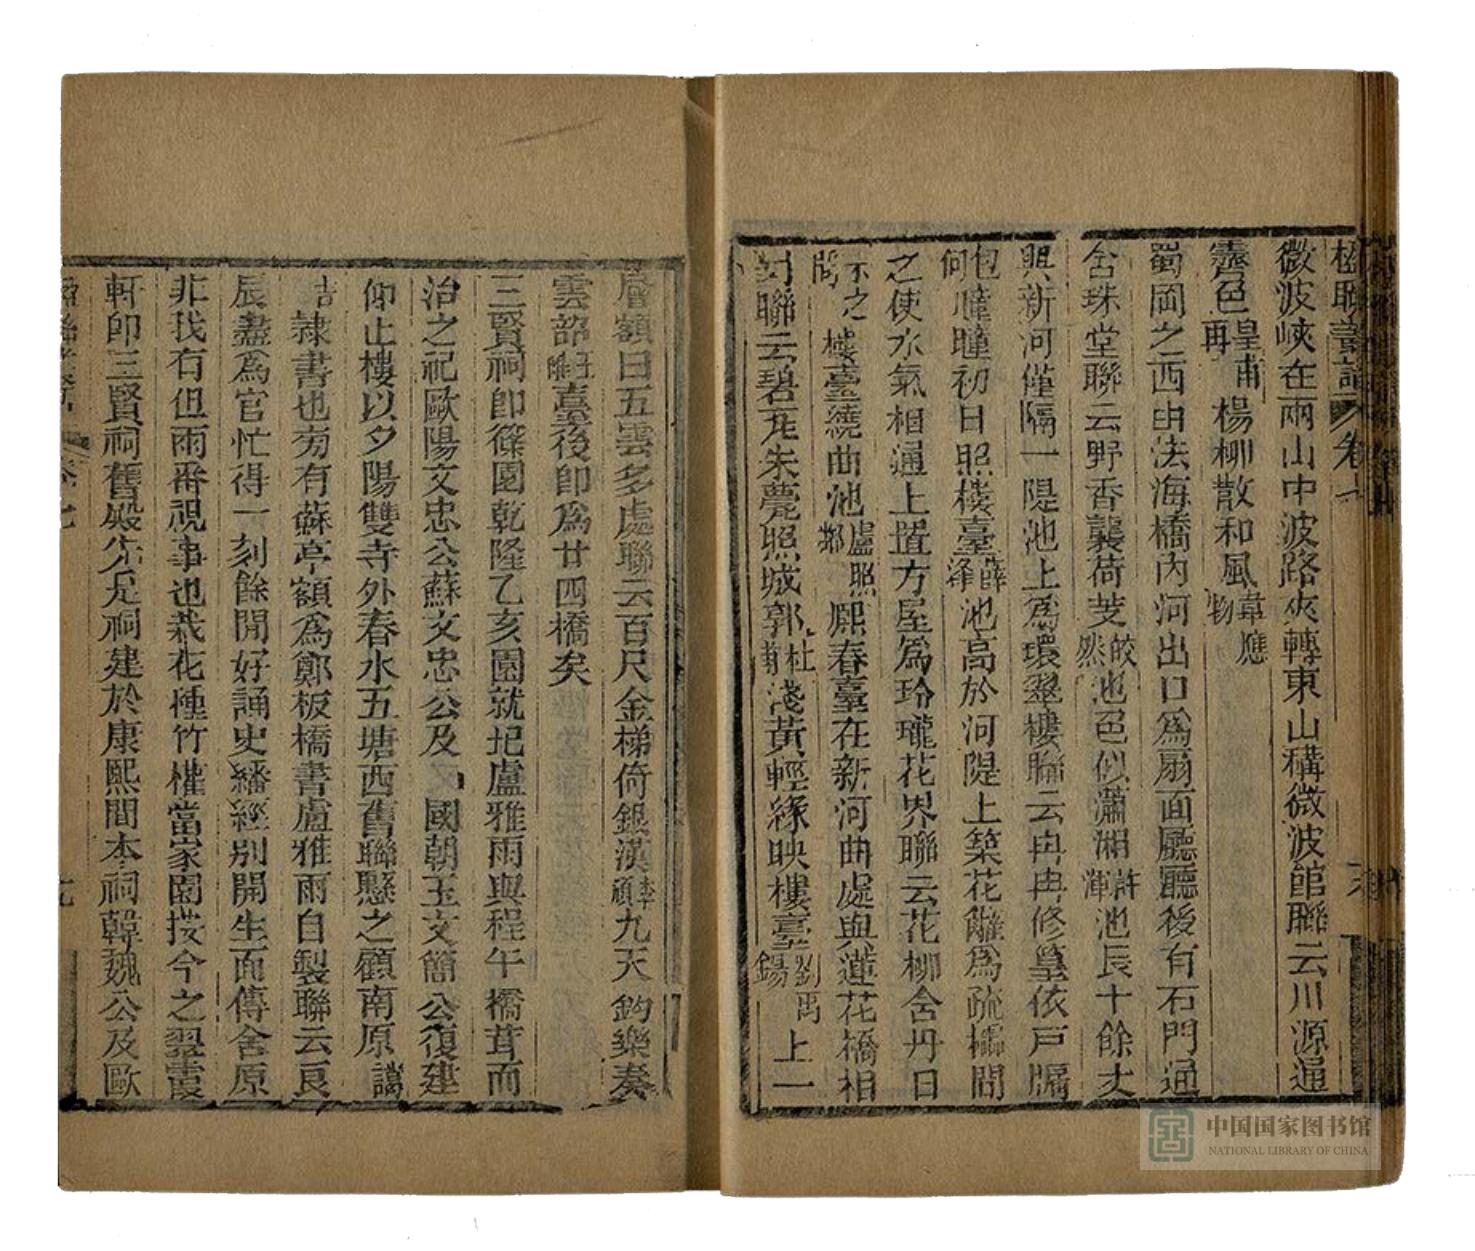 楹聯叢話 卷七
微波峽在兩山中波路夾轉東山構微波館聯云川源通
霽色皇甫冉楊柳散和風韋應物
蜀岡之西由法海橋內河出口爲扇面廳廳後有石門通
含珠堂聯云野香襲荷芰皎然池色似瀟湘許渾池長十餘丈
與新河僅隔一隄池上爲環翠樓聯云冉冉修篁依戶牖
包何曈曈初日照樓臺薛逢池高於河隄上築花籬爲疏櫺間
之使水氣相通上置方屋爲玲瓏花界聯云花柳含丹日
宋之問樓臺繞曲池盧照鄰熙春臺在新河曲處與蓮花橋相
對聯云碧瓦朱甍照城郭杜甫淺黃輕綠映樓臺劉禹錫上一
層額曰五雲多處聯云百尺金梯倚銀漢李頎九天鈞樂奏
雲韶王臺後卽爲廿四橋矣
三賢祠卽篠園乾隆乙亥園就圮盧雅雨與程午橋葺而
治之祀歐陽文忠公蘇文忠公及 國朝王文簡公復建
仰止樓以夕陽雙寺外春水五塘西舊聯懸之顧南原藹
吉隸書也旁有蘇亭額爲鄭板橋書盧雅雨自製聯云良
辰盡爲官忙得一刻餘閒好誦史繙經別開生面傳舍原
非我有但兩番視事也栽花種竹權當家園按今之翠霞
軒卽三賢祠舊殿先是祠建於康熙間本祠韓魏公及歐
楹聯叢話 卷七
中国国家图书馆
NATIONAL LIBRARY OF CHINA